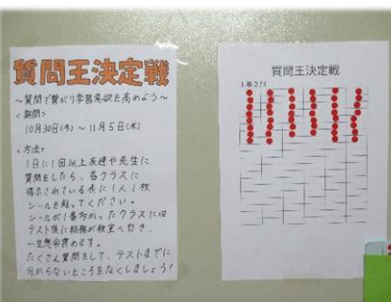 質問王決定戦
～質問で繋がり学習意欲を高めよう～
<期間>
10月30日(木)～11月5日(水)
<方法>
1日に1回以上友達や先生に
質問をしたら、各クラスに
掲示されている表に1人1枚
シールを貼ってください。
シールが1番多かったクラスには
テスト後に総務が教室へ行き、
一生懸命褒めます。
たくさん質問をして、テストまでに
分からないところをなくしましょう!
質問王決定戦
1年2